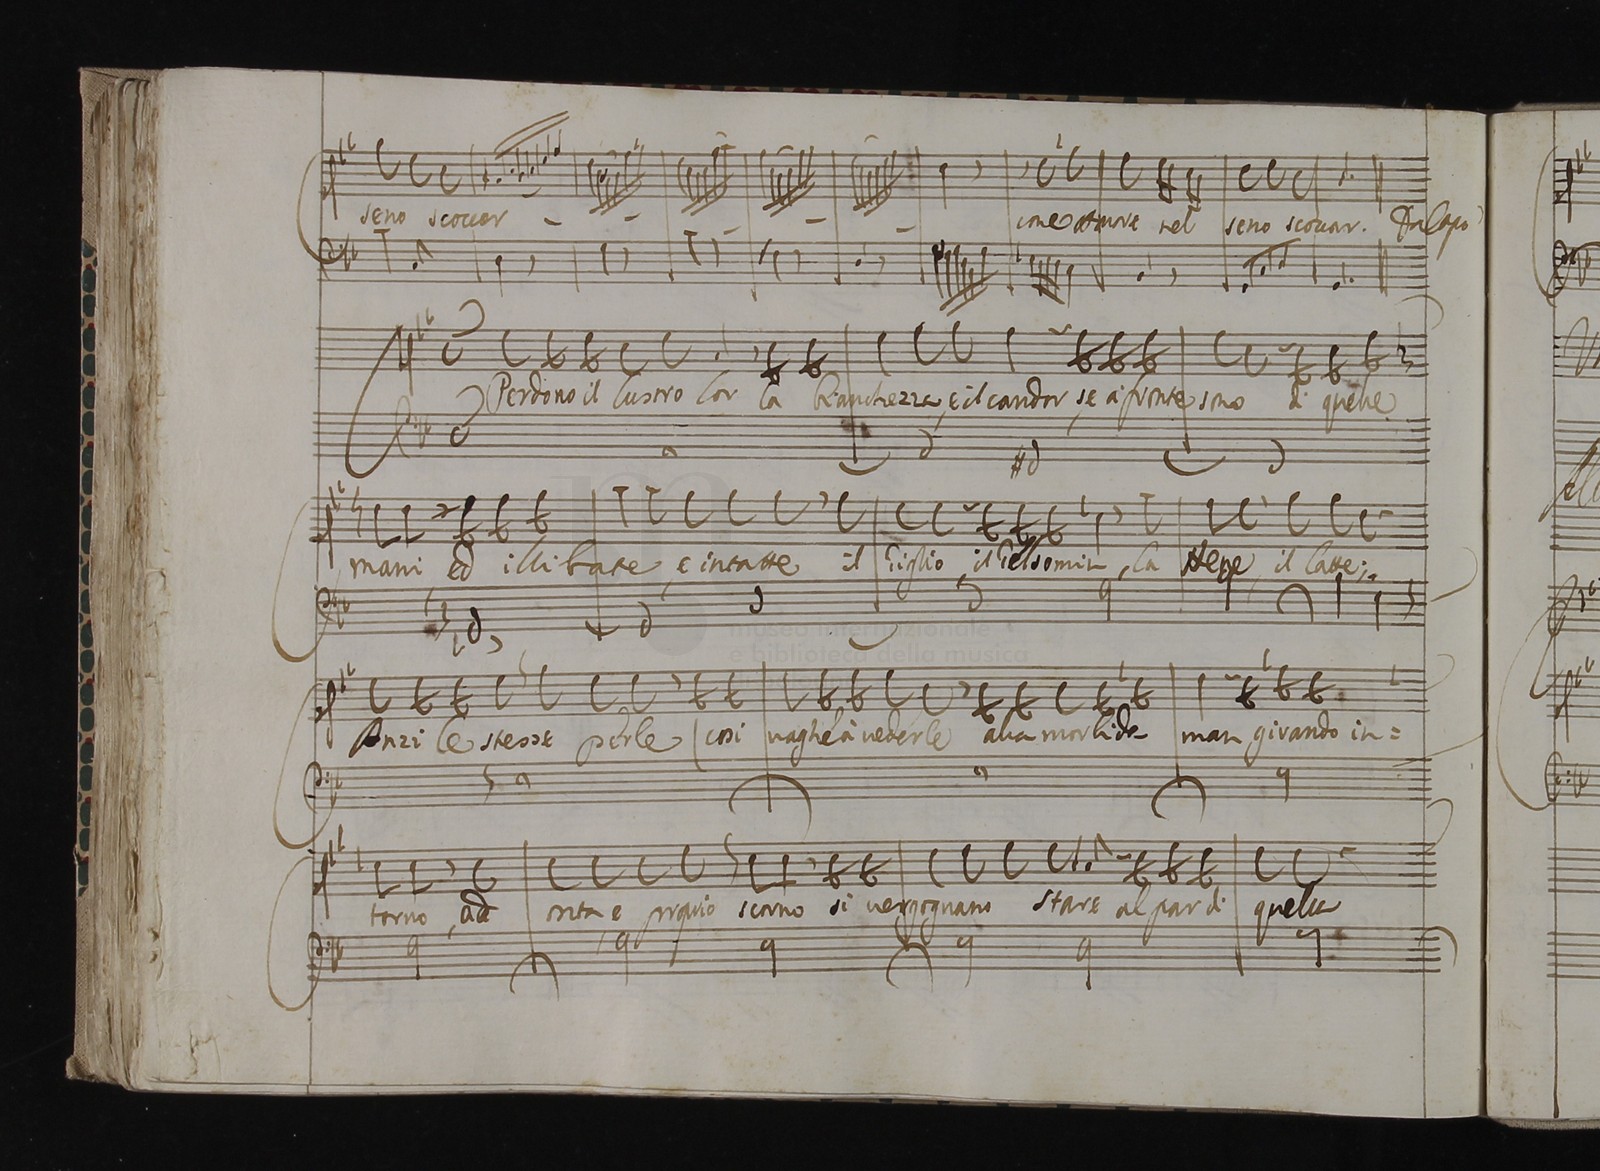 seno scoccar - - - - - come Amore nel seno scoccar. Da Capo
Perdono il lustro lor la bianchezza, e il candor, se a fronte sono di quelle
mani ed illibate e intatte il Giglio il Gelsomin, la Neve, il latte;
Anzi le stesse perle (così vaghe à vederle alla morbida man girando in=
torno, ad onta e proprio scorno si vergognano stare al par di quella
museo internazionale
e biblioteca della musica